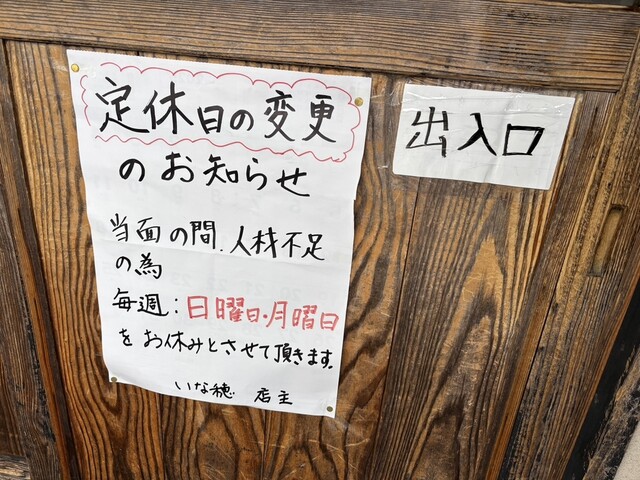 定休日の変更
のお知らせ
当面の間、人材不足
の為
毎週：日曜日・月曜日
をお休みとさせて頂きます。
いな穂 店主
出入口